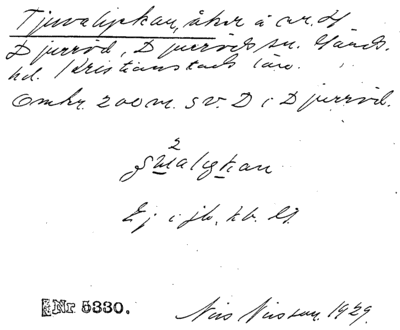 Tjuvalyckan, åker å nr. 4
Djurröd, Djurröds sn. Gärds
hd. Kristianstads län.
Omkr. 200 m. sv. D i Djurröd.
2
Ej i jb.
Nr 5330.
Nils Nilsson. 1929.